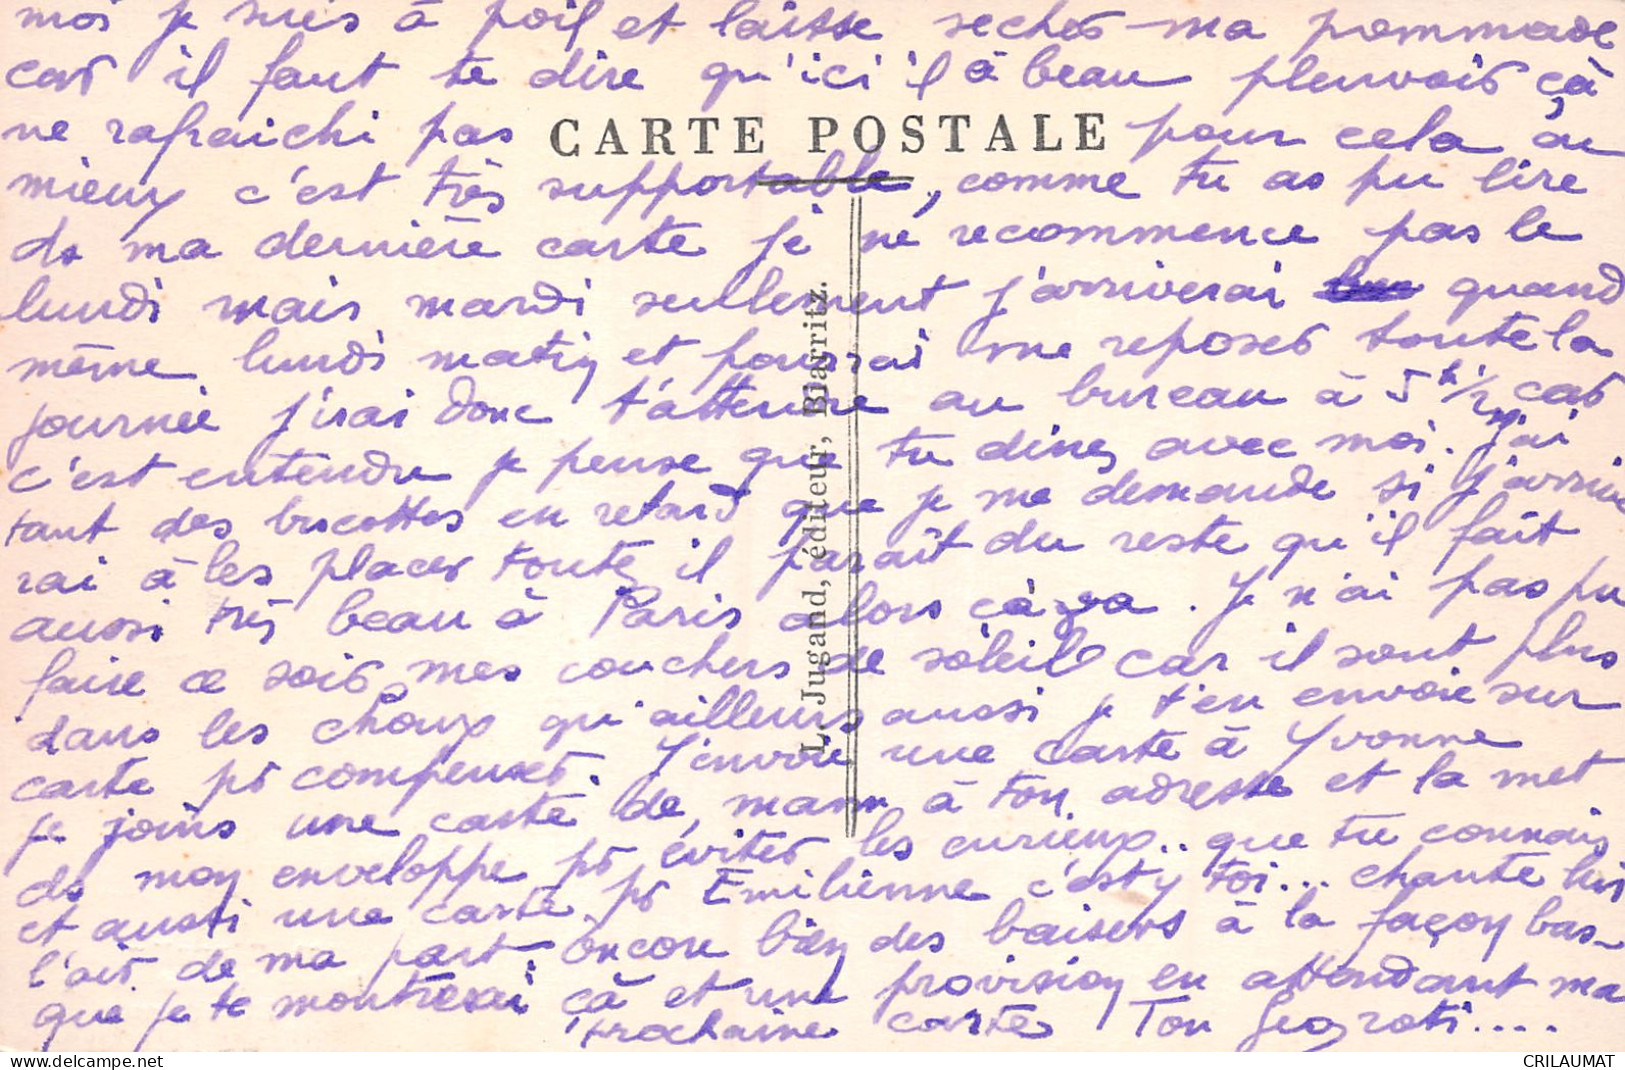 moi je suis à poil et laisse secher ma pommade
car il faut te dire qu'ici il à beau pleuvoir çà
ne rafraichi pas CARTE POSTALE pour cela au
mieux c'est très supportable, comme tu as pu lire
ds ma dernière carte je ne recommence pas le
lundi mais mardi seullement j'arriverai quand
même lundi matin et pourrai me reposer toute la
journée j'irai donc t'attendre au bureau à 5h1/2 car
c'est entendu je pense que tu dines avec moi. j'ai
tant des biscottes en retard que je me demande si j'arrive
rai à les placer toutes il parait du reste qu'il fait
aussi très beau à Paris alors çà va. Je n'ai pas pu
faire ce soir mes couchers de soleil car il sont plus
dans les choux qu'ailleurs aussi je t'en envoie sur
carte pr compenser. J'envoie une carte à Yvonne
je joins une carte de, mam, à ton adresse et la met
ds mon enveloppe pr éviter les curieux.. que tu connais
et aussi une carte pr Emilienne c'est y toi... chante lui
l'air de ma part. encore bien des baisers à la façon bas-
que je te montrerai çà et une provision en attendant ma
prochaine carte Ton
L. Jugand, éditeur, Biarritz.
CRILAUMAT
www.delcampe.net